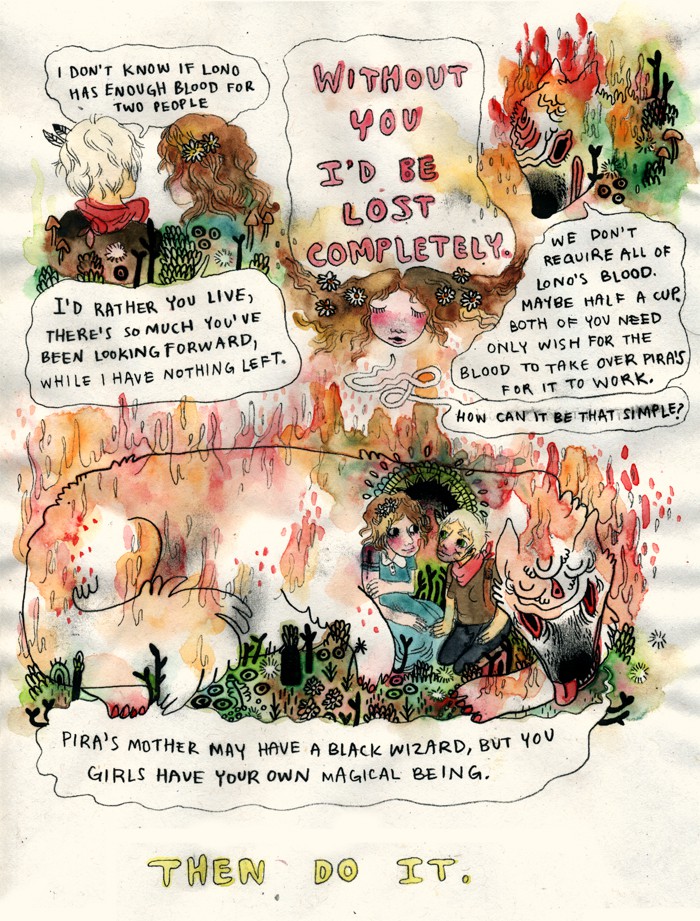 I DON'T KNOW IF LONO
HAS ENOUGH BLOOD FOR
TWO PEOPLE
I'D RATHER YOU LIVE,
THERE'S SO MUCH YOU'VE
BEEN LOOKING FORWARD,
WHILE I HAVE NOTHING LEFT.
WITHOUT
YOU
I'D BE
LOST
COMPLETELY.
WE DON'T
REQUIRE ALL OF
LONO'S BLOOD.
MAYBE HALF A CUP.
BOTH OF YOU NEED
ONLY WISH FOR THE
BLOOD TO TAKE OVER PIRA'S
FOR IT TO WORK.
HOW CAN IT BE THAT SIMPLE?
PIRA'S MOTHER MAY HAVE A BLACK WIZARD, BUT YOU
GIRLS HAVE YOUR OWN MAGICAL BEING.
THEN DO IT.